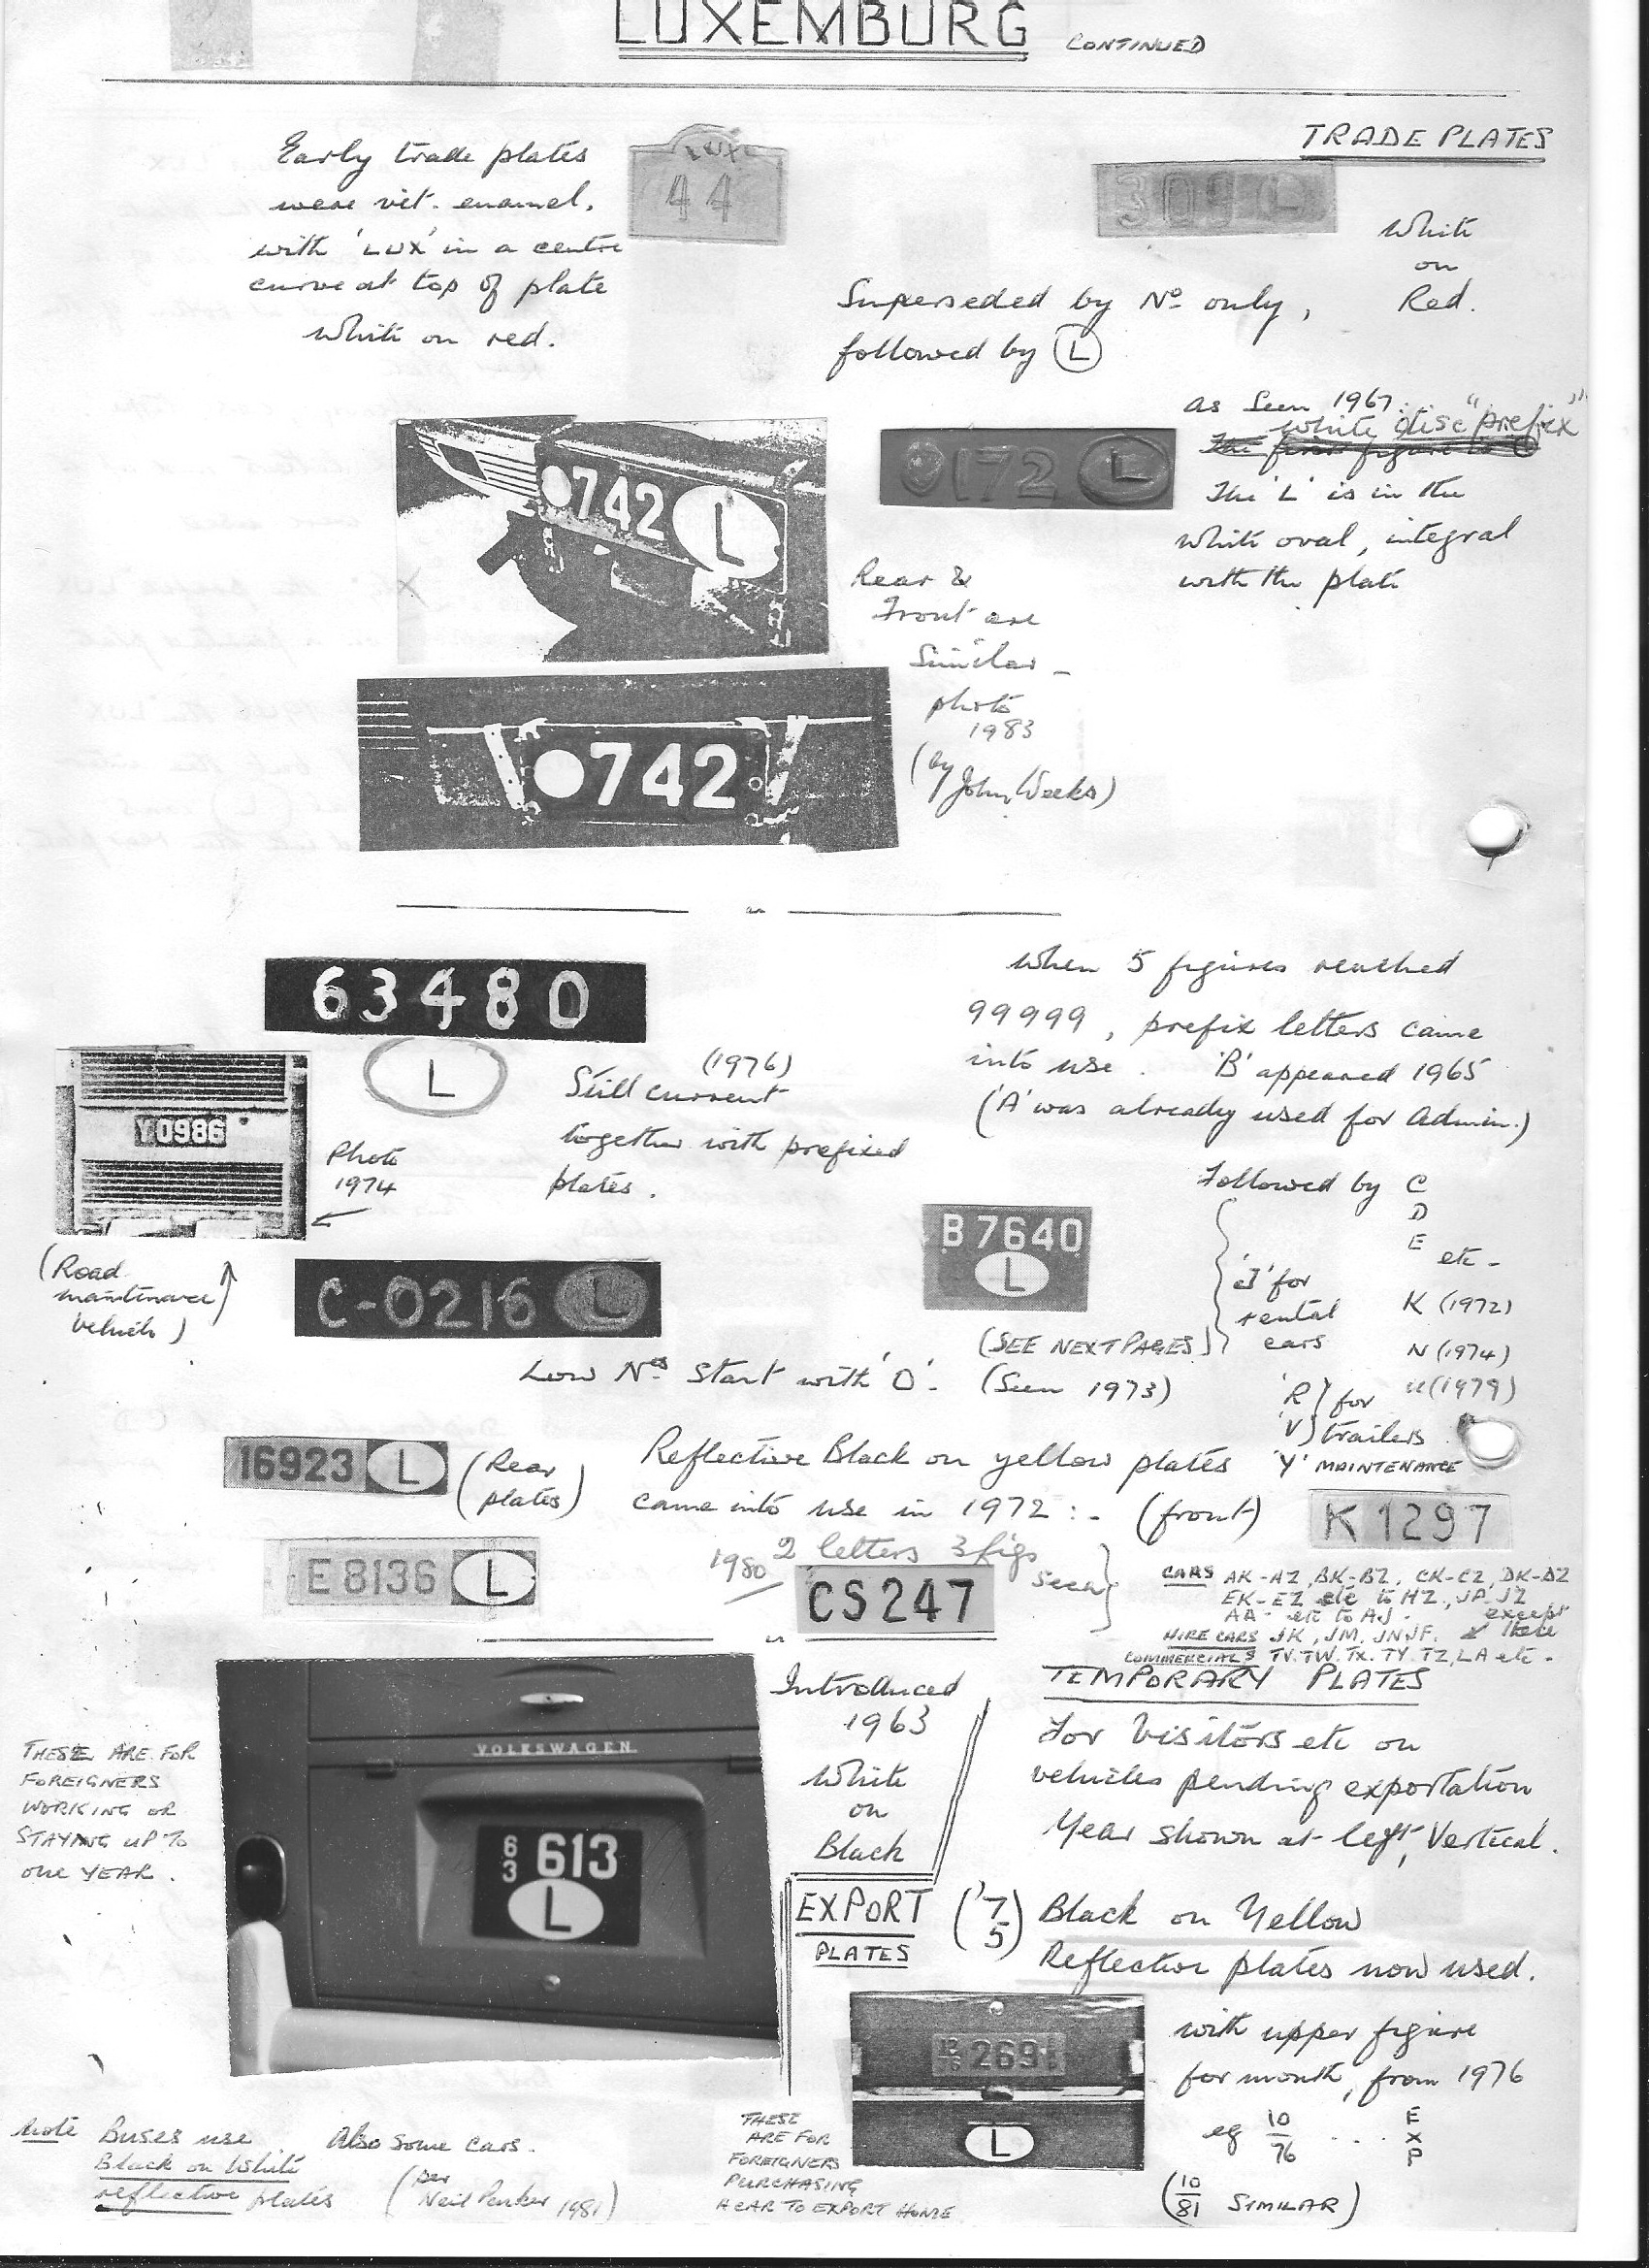 LUXEMBURG CONTINUED
TRADE PLATES
Early trade plates
were vit. enamel.
with 'LUX' in a centre
curve at top of plate
White on red.
LUX
44
309 L
White
on
Red.
Superseded by Nº only,
followed by L
as seen 1967.
White disc "prefix"
The first figure is
The 'L' is in the
white oval, integral
with the plate
742 L
0172 L
Rear &
Front are
Similar -
photo
1983
(by
John Weeks)
742
63480
L
(1976)
Still current
together with prefixed
plates.
When 5 figures reached
99999, prefix letters came
into use. 'B' appeared 1965
('A' was already used for Admin.)
Y0986
Photo
1974
(Road
maintenance
vehicle)
Followed by C
D
E etc -
K (1972)
N (1974)
U (1979)
'J' for
rental
cars
'R' } for
'V' } trailers
'Y' MAINTENANCE
B 7640
L
(SEE NEXT PAGES)
C-0216 L
Low Nºs Start with 'O'. (Seen 1973)
16923 L
(Rear
plates)
Reflective Black on yellow plates
came into use in 1972 :- (front)
K 1297
E 8136 L
1980 2 letters 3 figs
seen
CS 247
CARS AK-AZ, BK-BZ, CK-CZ, DK-DZ
EK-EZ etc to HZ, JA JZ
AA- etc to AJ - except
HIRE CARS JK, JM, JN JF. these
COMMERCIALS TV. TW. TX. TY. TZ, LA etc -
THESE ARE FOR
FOREIGNERS
WORKING OR
STAYING UP TO
ONE YEAR.
VOLKSWAGEN
63 613
L
Introduced
1963
White
on
Black
TEMPORARY PLATES
For Visitors etc on
vehicles pending exportation
Year shown at left, Vertical.
EXPORT
PLATES
('7
5)
Black on Yellow
Reflective plates now used.
269
L
with upper figure
for month, from 1976
eg 10
76 .... E
X
P
(10
81 SIMILAR)
THESE
ARE FOR
FOREIGNERS
PURCHASING
A CAR TO EXPORT HOME
Note Buses use
Black on White
reflective plates
Also some cars.
(per
Neil Parker 1981)